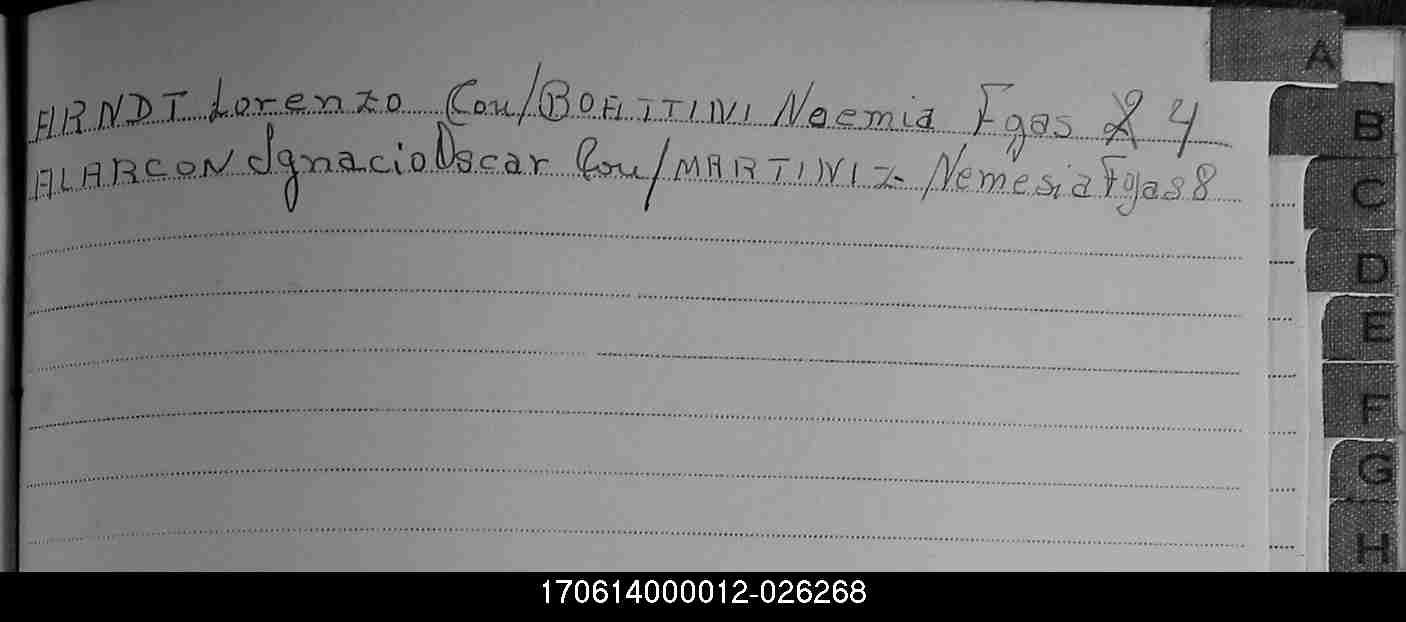 ARNDT Lorenzo Con/BOATTINI Noemia Fgas 24
ALARCON Ignacio Oscar Con/MARTINIZ Nemesia Fgas 8
A
B
C
D
E
F
G
H
170614000012-026268